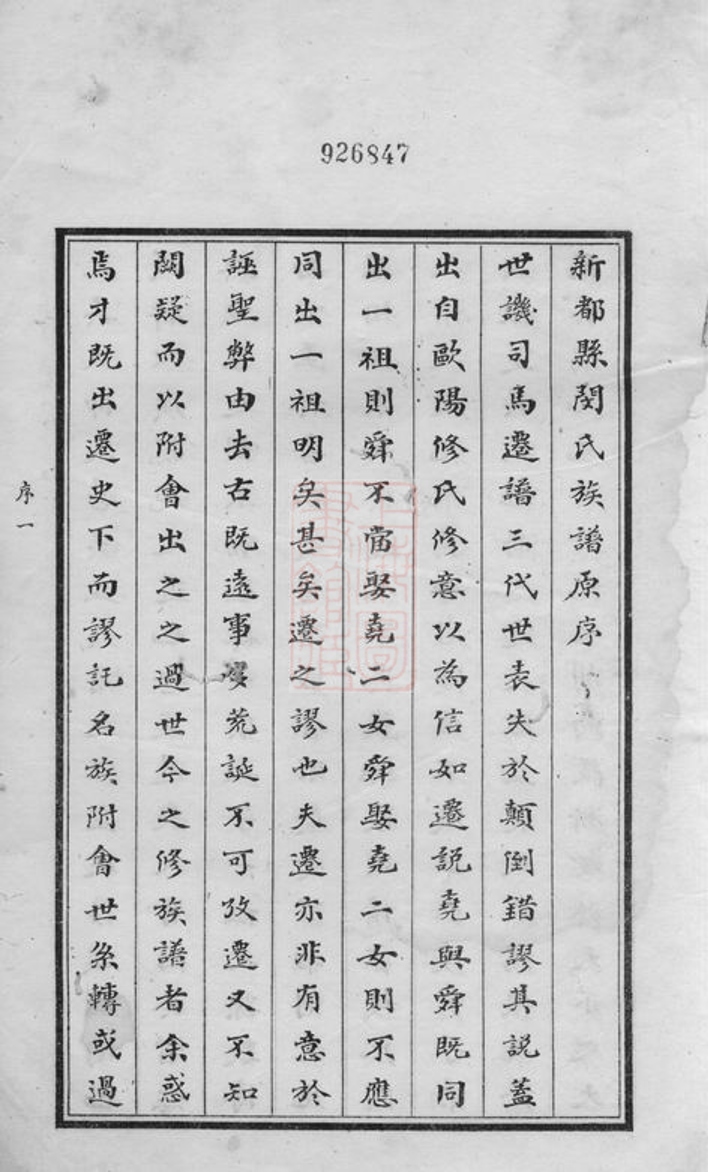 926847
新都縣閔氏族譜原序
世譏司馬遷譜三代世表失於顛倒錯謬其説蓋
出自歐陽修氏修意以為信如遷説堯與舜既同
出一祖則舜不當娶堯二女舜娶堯二女則不應
同出一祖明矣甚矣遷之謬也夫遷亦非有意於
誣聖弊由去古既遠事多荒誕不可攷遷又不知
闕疑而以附會出之之過世今之修族譜者余惑
焉才既出遷史下而謬託名族附會世系轉或過
序一